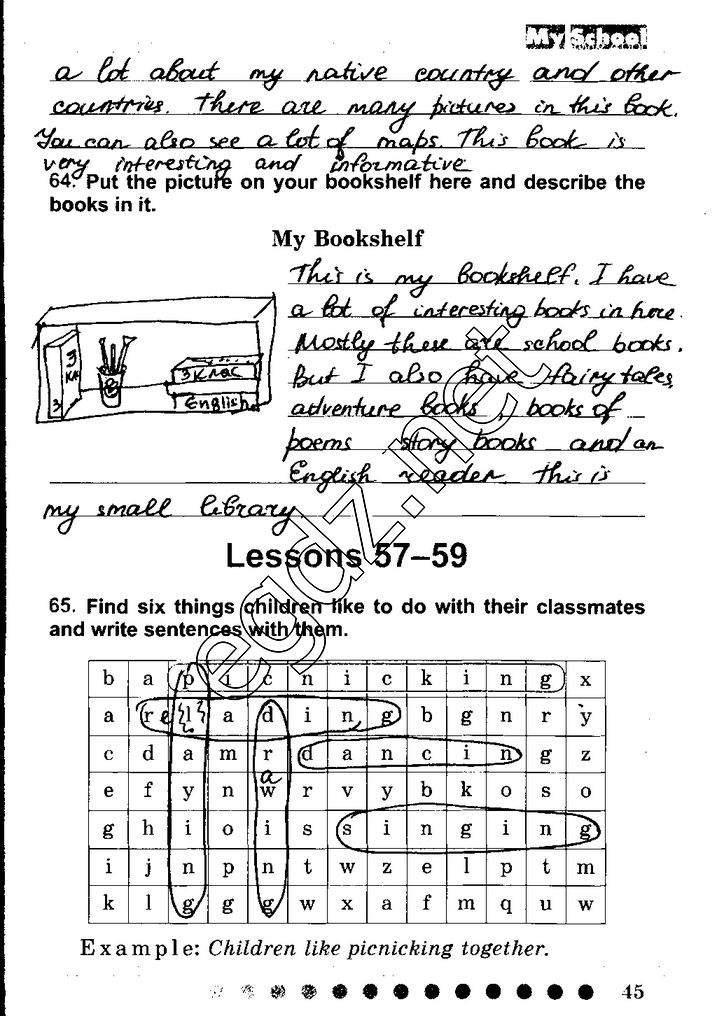 My School
a lot about my native country and other
countries. There are many pictures in this book.
You can also see a lot of maps. This book is
very interesting and informative
64. Put the picture on your bookshelf here and describe the
books in it.
My Bookshelf
This is my bookshelf. I have
a lot of interesting books in here.
Mostly these are school books.
But I also have fairy tales,
adventure books, books of
poems story books and an
English reader. This is
my small library.
3 КЛАС
3
3 КЛАС
English
egdz.net
Lessons 57–59
65. Find six things children like to do with their classmates
and write sentences with them.
b a p i c n i c k i n g x
a r e l a d i n g b g n r y
c d a m r d a n c i n g z
e f y n a w r v y b k o s o
g h i o i s s i n g i n g
i j n p n t w z e l p t m
k l g g g w x a f m q u w
Example: Children like picnicking together.
45